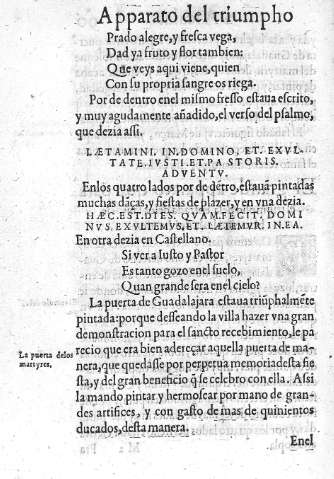 Apparato del triumpho
Prado alegre, y fresca vega,
Dad ya fruto y flor tambien:
Que veys aqui viene, quien
Con su propria sangre os riega.
Por de dentro enel mismo fresso estaua escrito,
y muy agudamente añadido, el verso del psalmo,
que dezia assi.
LÆTAMINI. IN. DOMINO, ET. EXVL-
TATE. IVSTI. ET. PASTORIS.
ADVENTV.
Enlos quatro lados por de dẽtro, estauã pintadas
muchas dãças, y fiestas de plazer, y en vna dezia.
HÆC. EST. DIES. QVAM. FECIT. DOMI
NVS. EXVLTEMVS, ET. LÆTEMVR. IN. EA.
En otra dezia en Castellano.
Si ver a Iusto y Pastor
Es tanto gozo enel suelo,
Quan grande sera enel cielo?
La puerta de Guadalajara estaua triũphalmẽte
pintada: porque desseando la villa hazer vna gran
demonstracion para el sancto recebimiento, le pa
recio que era bien adereçar aquella puerta de ma-
La puerta delos
martyres.
nera, que quedasse por perpetua memoria desta fie
sta, y del gran beneficio q̃ se celebro con ella. Assi
la mando pintar y hermosear por mano de gran-
des artifices, y con gasto de mas de quinientos
ducados, desta manera.
Enel